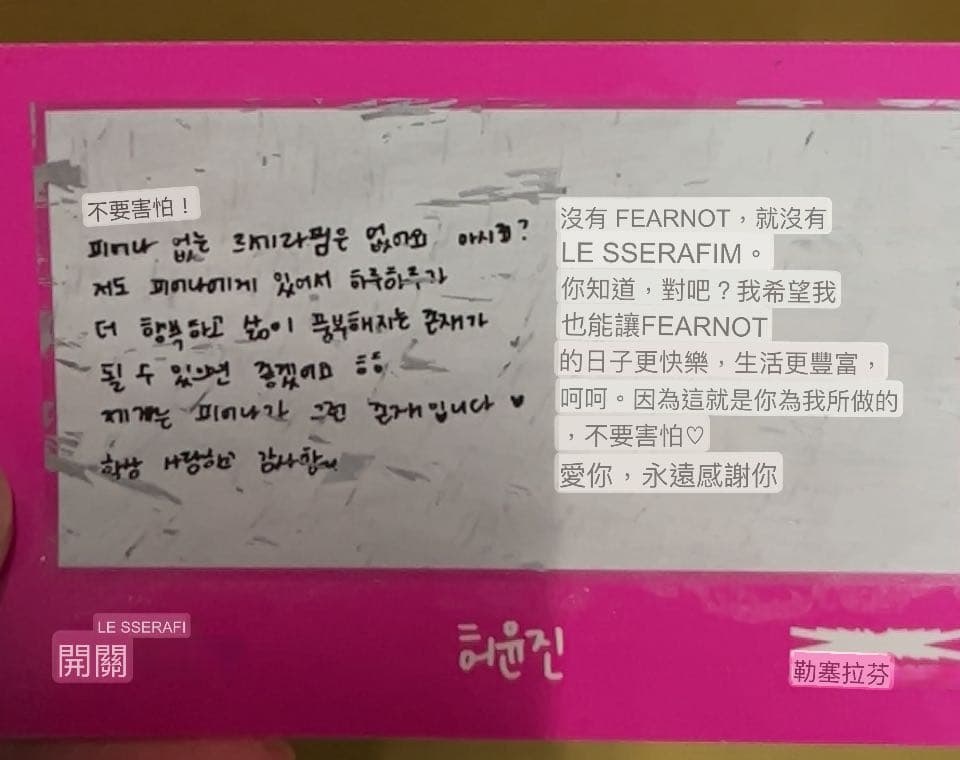 不要害怕！
피어나 없는 르세라핌은 없어요 아시죠?
저도 피어나에게 있어서 하루하루가
더 행복하고 삶이 풍부해지는 존재가
될 수 있으면 좋겠어요 ㅎㅎ
제게는 피어나가 그런 존재입니다 ♥
항상 사랑하고 감사함니다
沒有 FEARNOT，就沒有
LE SSERAFIM。
你知道，對吧？我希望我
也能讓FEARNOT
的日子更快樂，生活更豐富，
呵呵。因為這就是你為我所做的
，不要害怕♡
愛你，永遠感謝你
LE SSERAFI
開關
허윤진
勒塞拉芬